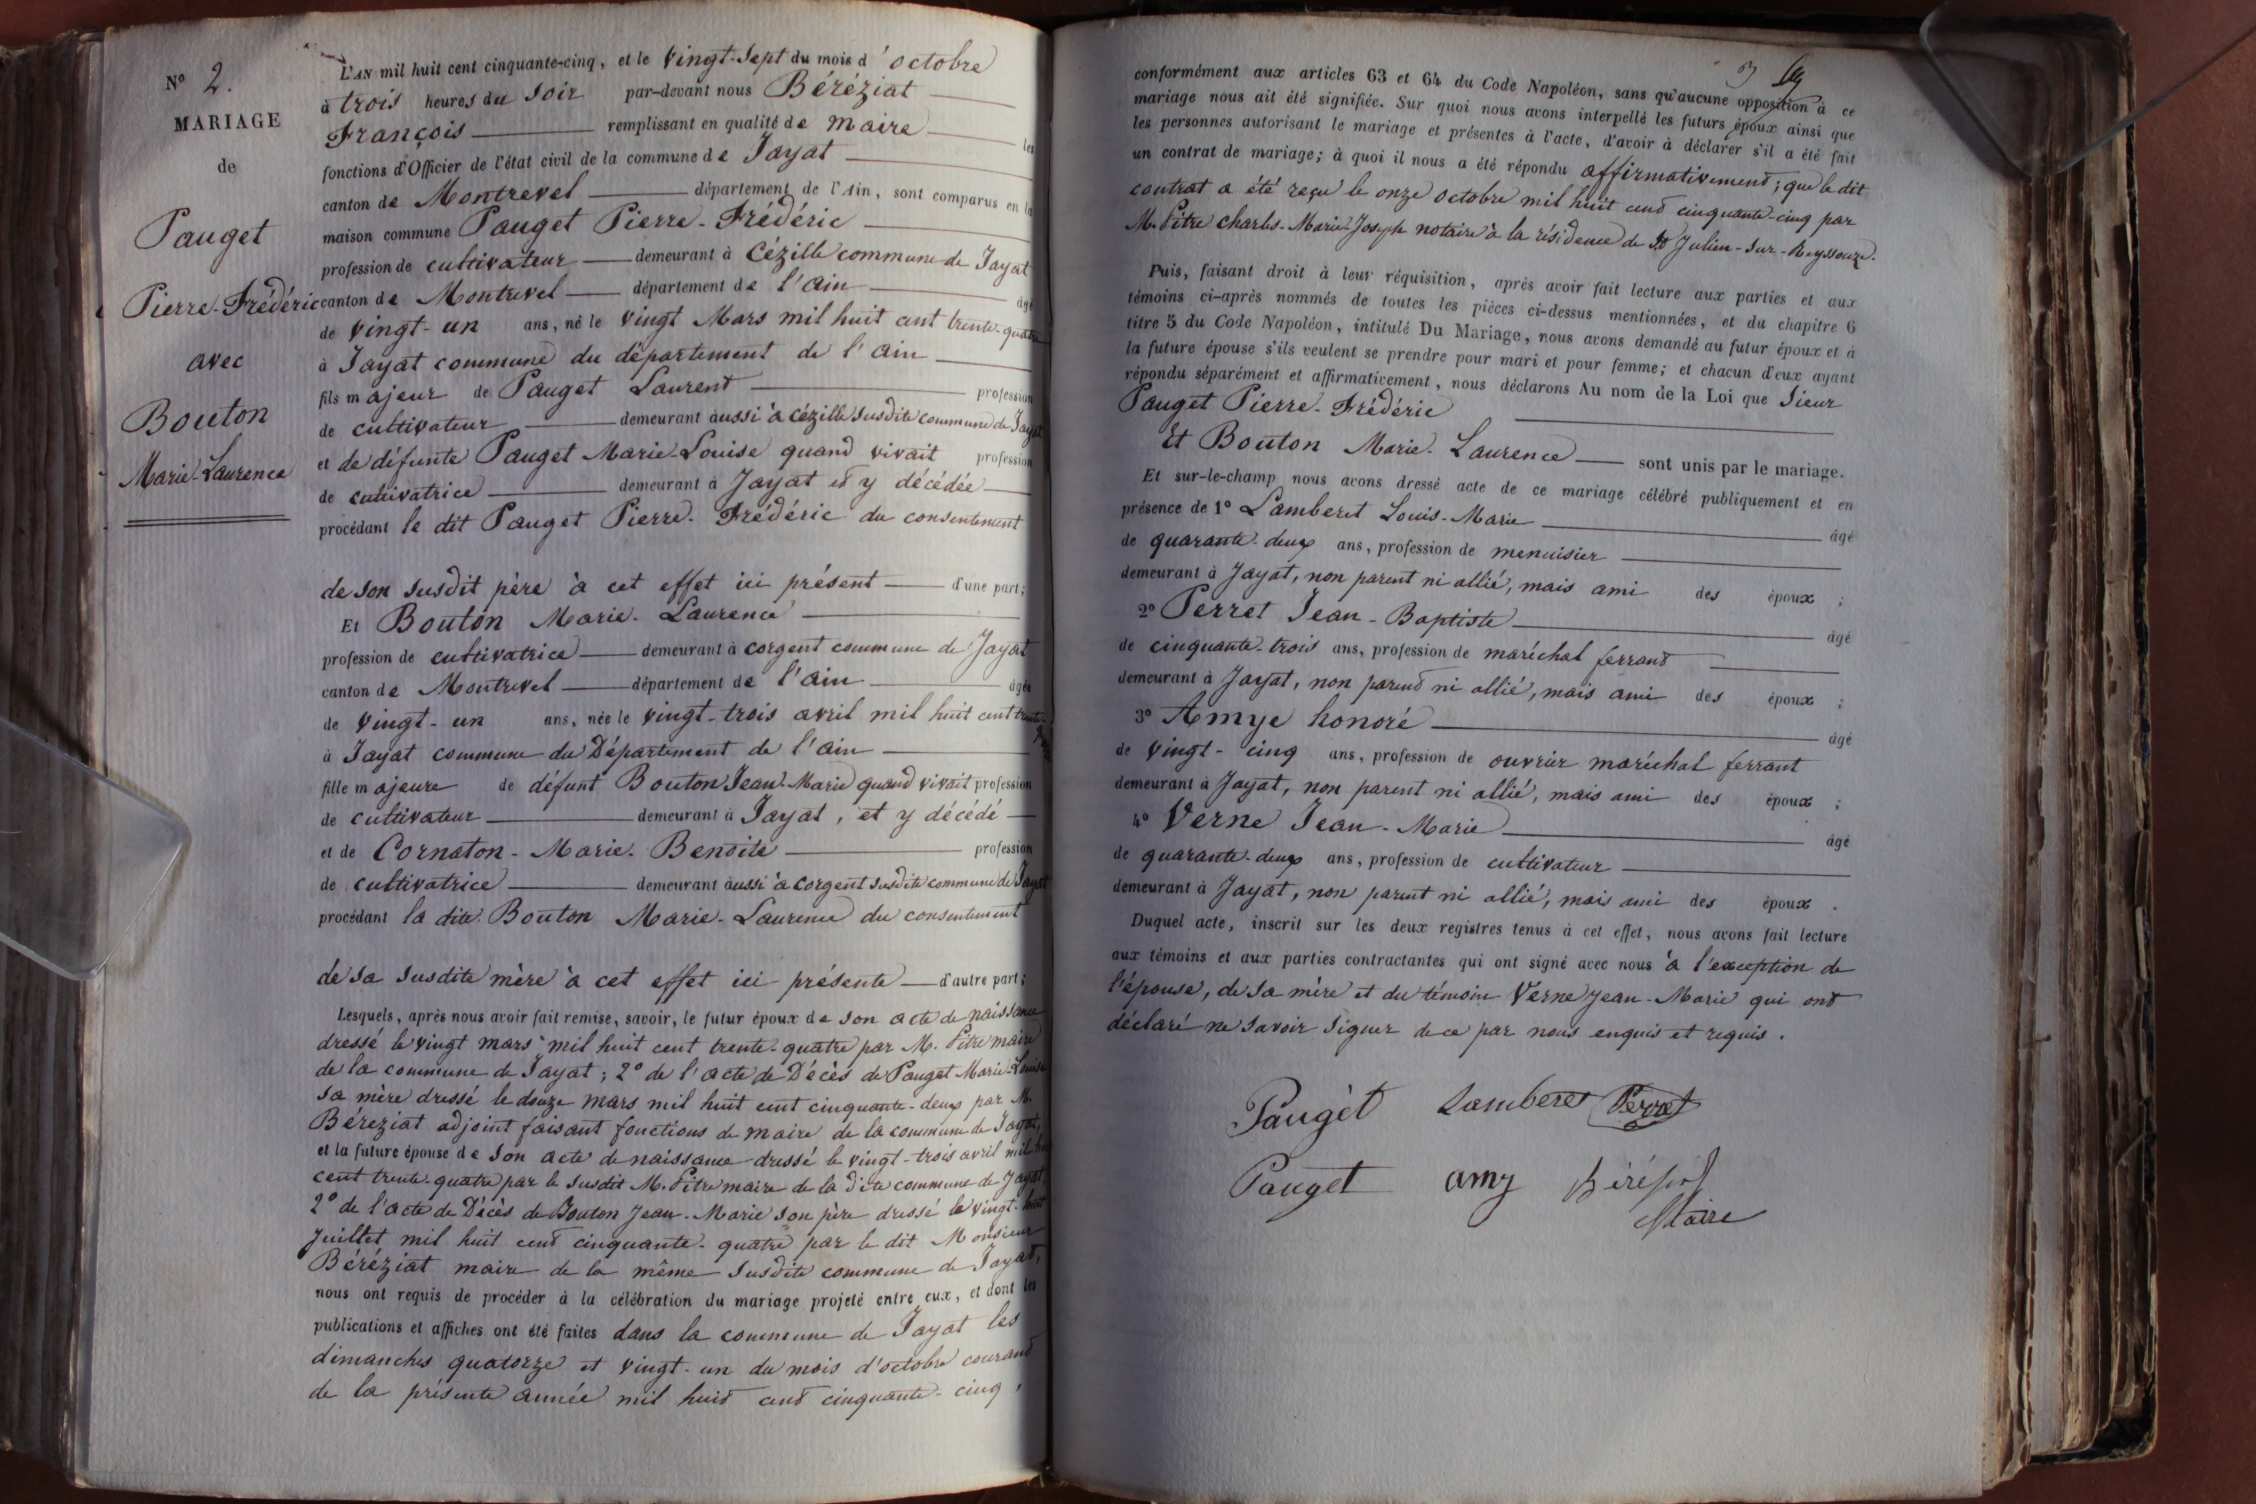 N° 2.
MARIAGE
de
Pauget
Pierre-Frédéric
avec
Bouton
Marie-Laurence
L'AN mil huit cent cinquante-cinq, et le vingt-sept du mois d'octobre
à trois heures du soir par-devant nous Béréziat
François remplissant en qualité de maire les
fonctions d'Officier de l'état civil de la commune de Jayat
canton de Montrevel département de l'Ain, sont comparus en la
maison commune Pauget Pierre-Frédéric
profession de cultivateur demeurant à Cézille commune de Jayat
canton de Montrevel département de l'ain âgé
de vingt-un ans, né le vingt Mars mil huit cent trente-quatre
à Jayat commune du département de l'ain
fils majeur de Pauget Laurent profession
de cultivateur demeurant aussi à Cézille susdite commune de Jayat
et de défunte Pauget Marie-Louise quand vivait profession
de cultivatrice demeurant à Jayat et y décédée
procédant le dit Pauget Pierre-Frédéric du consentement
de son susdit père à cet effet ici présent d'une part;
Et Bouton Marie-Laurence
profession de cultivatrice demeurant à corgent commune de Jayat
canton de Montrevel département de l'ain âgée
de vingt-un ans, née le vingt-trois avril mil huit cent trente
à Jayat commune du Département de l'ain
fille majeure de défunt Bouton Jean-Marie quand vivait profession
de cultivateur demeurant à Jayat, et y décédé
et de Cornaton-Marie-Benoite profession
de cultivatrice demeurant aussi à corgent susdite commune de Jayat
procédant la dite Bouton Marie-Laurence du consentement
de sa susdite mère à cet effet ici présente d'autre part;
Lesquels, après nous avoir fait remise, savoir, le futur époux de son acte de naissance
dressé le vingt mars mil huit cent trente-quatre par M. Pitre maire
de la commune de Jayat; 2° de l'acte de Décès de Pauget Marie-Louise
sa mère dressé le douze mars mil huit cent cinquante-deux par M.
Béreziat adjoint faisant fonctions de maire de la commune de Jayat,
et la future épouse de son acte de naissance dressé le vingt-trois avril mil huit
cent trente-quatre par le susdit M. Pitre maire de la dite commune de Jayat
2° de l'acte de Décès de Bouton Jean-Marie son père dressé le vingt-huit
juillet mil huit cent cinquante-quatre par le dit Monsieur
Béréziat maire de la même susdite commune de Jayat,
nous ont requis de procéder à la célébration du mariage projeté entre eux, et dont les
publications et affiches ont été faites dans la commune de Jayat les
dimanches quatorze et vingt-un du mois d'octobre courant
de la présente année mil huit cent cinquante-cinq,
3
conformément aux articles 63 et 64 du Code Napoléon, sans qu'aucune opposition à ce
mariage nous ait été signifiée. Sur quoi nous avons interpellé les futurs époux ainsi que
les personnes autorisant le mariage et présentes à l'acte, d'avoir à déclarer s'il a été fait
un contrat de mariage; à quoi il nous a été répondu affirmativement; que le dit
contrat a été reçu le onze octobre mil huit cent cinquante-cinq par
M. Pitre Charles-Marie-Joseph notaire à la résidence de St Julien-sur-Reyssouze.
Puis, faisant droit à leur réquisition, après avoir fait lecture aux parties et aux
témoins ci-après nommés de toutes les pièces ci-dessus mentionnées, et du chapitre 6
titre 5 du Code Napoléon, intitulé Du Mariage, nous avons demandé au futur époux et à
la future épouse s'ils veulent se prendre pour mari et pour femme; et chacun d'eux ayant
répondu séparément et affirmativement, nous déclarons Au nom de la Loi que Sieur
Pauget Pierre-Frédéric
Et Bouton Marie-Laurence sont unis par le mariage.
Et sur-le-champ nous avons dressé acte de ce mariage célébré publiquement et en
présence de 1° Lamberet Louis-Marie âgé
de quarante-deux ans, profession de menuisier
demeurant à Jayat, non parent ni allié, mais ami des époux ;
2° Perret Jean-Baptiste âgé
de cinquante-trois ans, profession de maréchal ferrant
demeurant à Jayat, non parent ni allié, mais ami des époux ;
3° Amye honoré âgé
de vingt-cinq ans, profession de ouvrier maréchal ferrant
demeurant à Jayat, non parent ni allié, mais ami des époux ;
4° Verne Jean-Marie âgé
de quarante-deux ans, profession de cultivateur
demeurant à Jayat, non parent ni allié, mais ami des époux.
Duquel acte, inscrit sur les deux registres tenus à cet effet, nous avons fait lecture
aux témoins et aux parties contractantes qui ont signé avec nous à l'exception de
l'épouse, de sa mère et du témoin Verne Jean-Marie qui ont
déclaré ne savoir signer de ce par nous enquis et requis.
Paugèt Lamberet Perret
Pauget amy
Maire